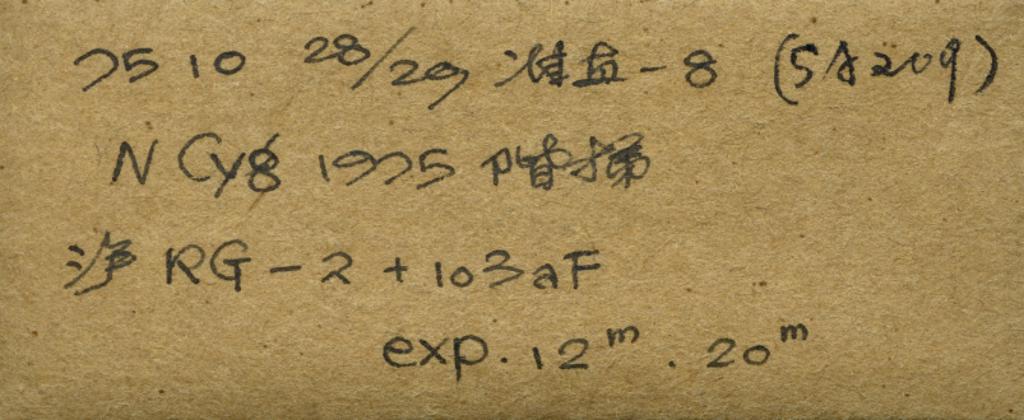 7510 28/29 -8 (5A209)
N Cyg 1975
RG-2 + 103aF
exp. 12ᵐ. 20ᵐ